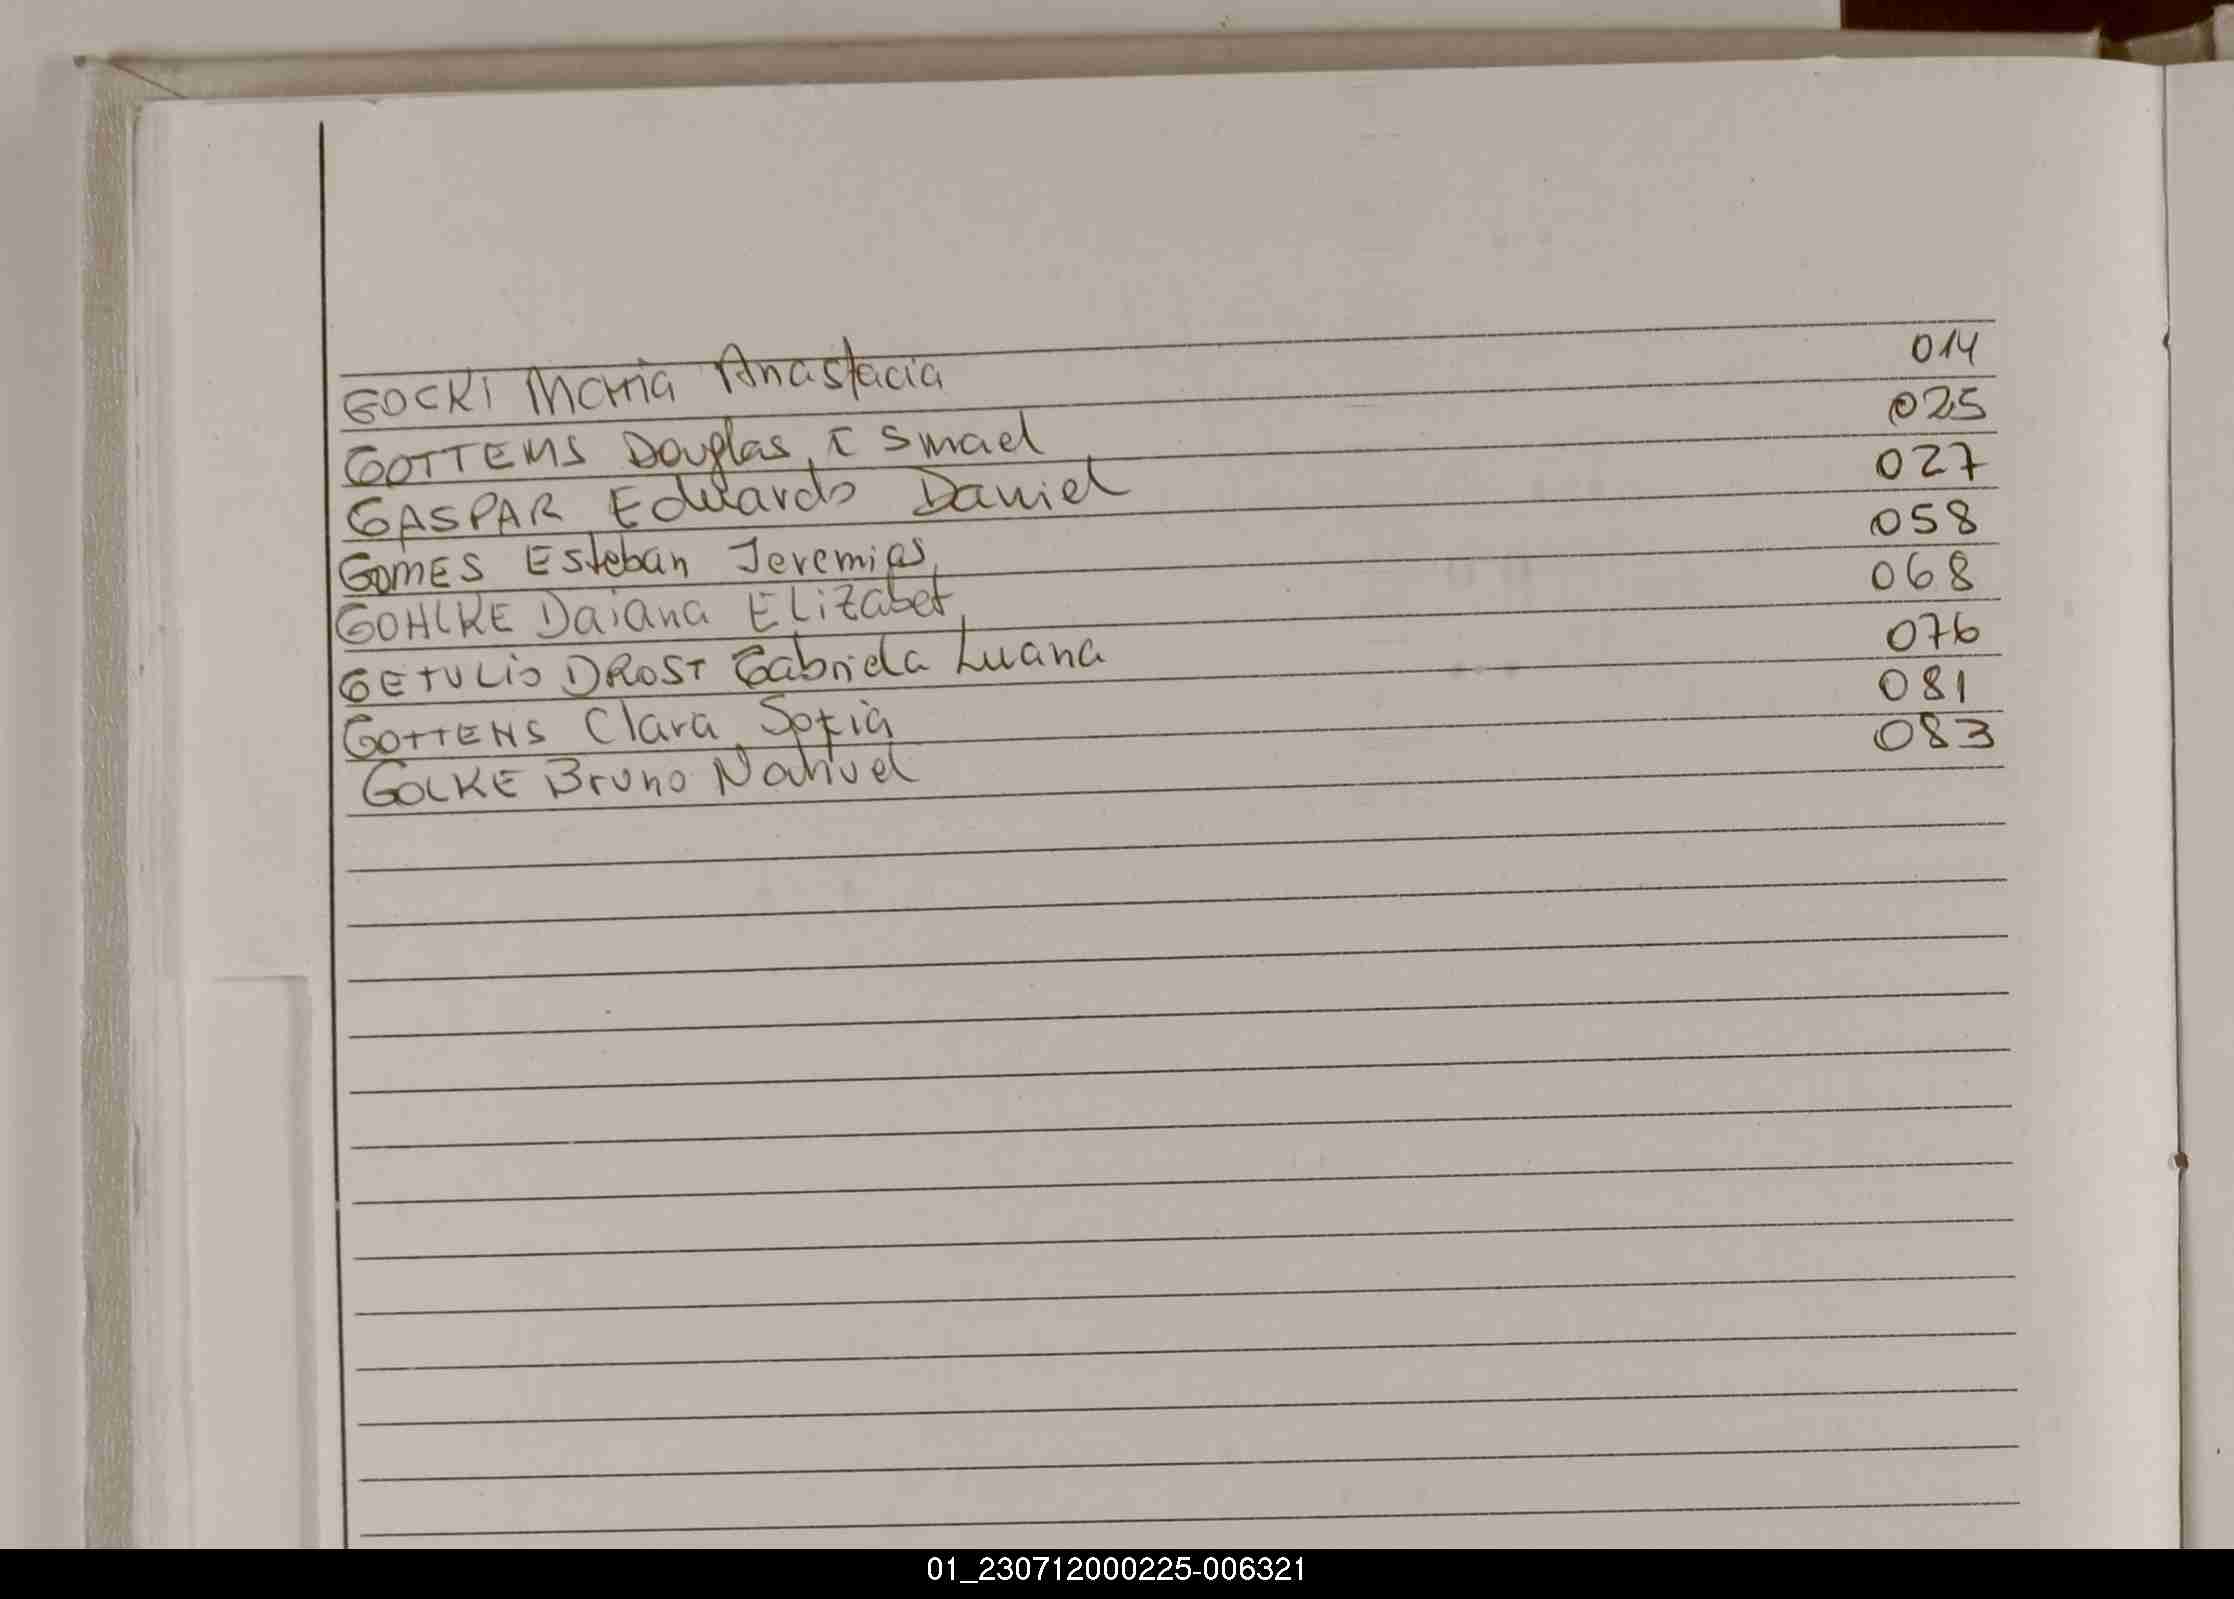 GOCKI Maria Anastacia 014
GOTTEMS Douglas Ismael 025
GASPAR Eduardo Daniel 027
GOMES Esteban Jeremias 058
GOHLKE Daiana ELizabet 068
GETULIO DROST Gabriela Luana 076
GOTTENS Clara Sofia 081
GOLKE Bruno Nahuel 083
01_230712000225-006321